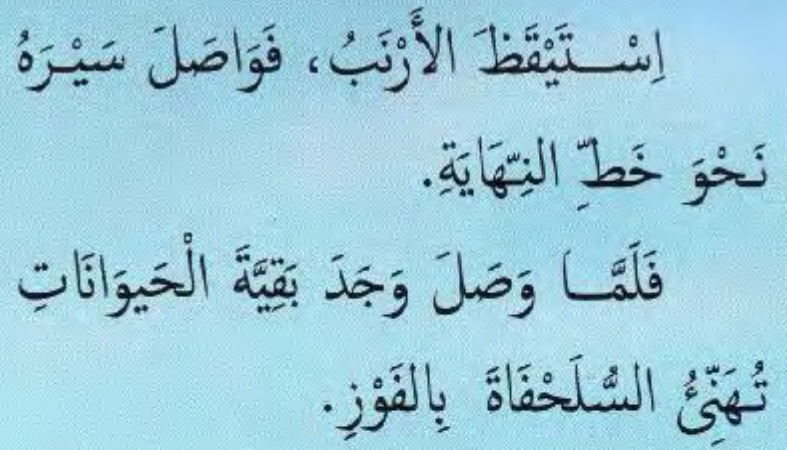 اِسْتَيْقَظَ الأَرْنَبُ، فَوَاصَلَ سَيْرَهُ
نَحْوَ خَطِّ النِّهَايَةِ.
فَلَمَّا وَصَلَ وَجَدَ بَقِيَّةَ الْحَيوَانَاتِ
تُهَنِّئُ السُّلَحْفَاةَ بِالفَوْزِ.